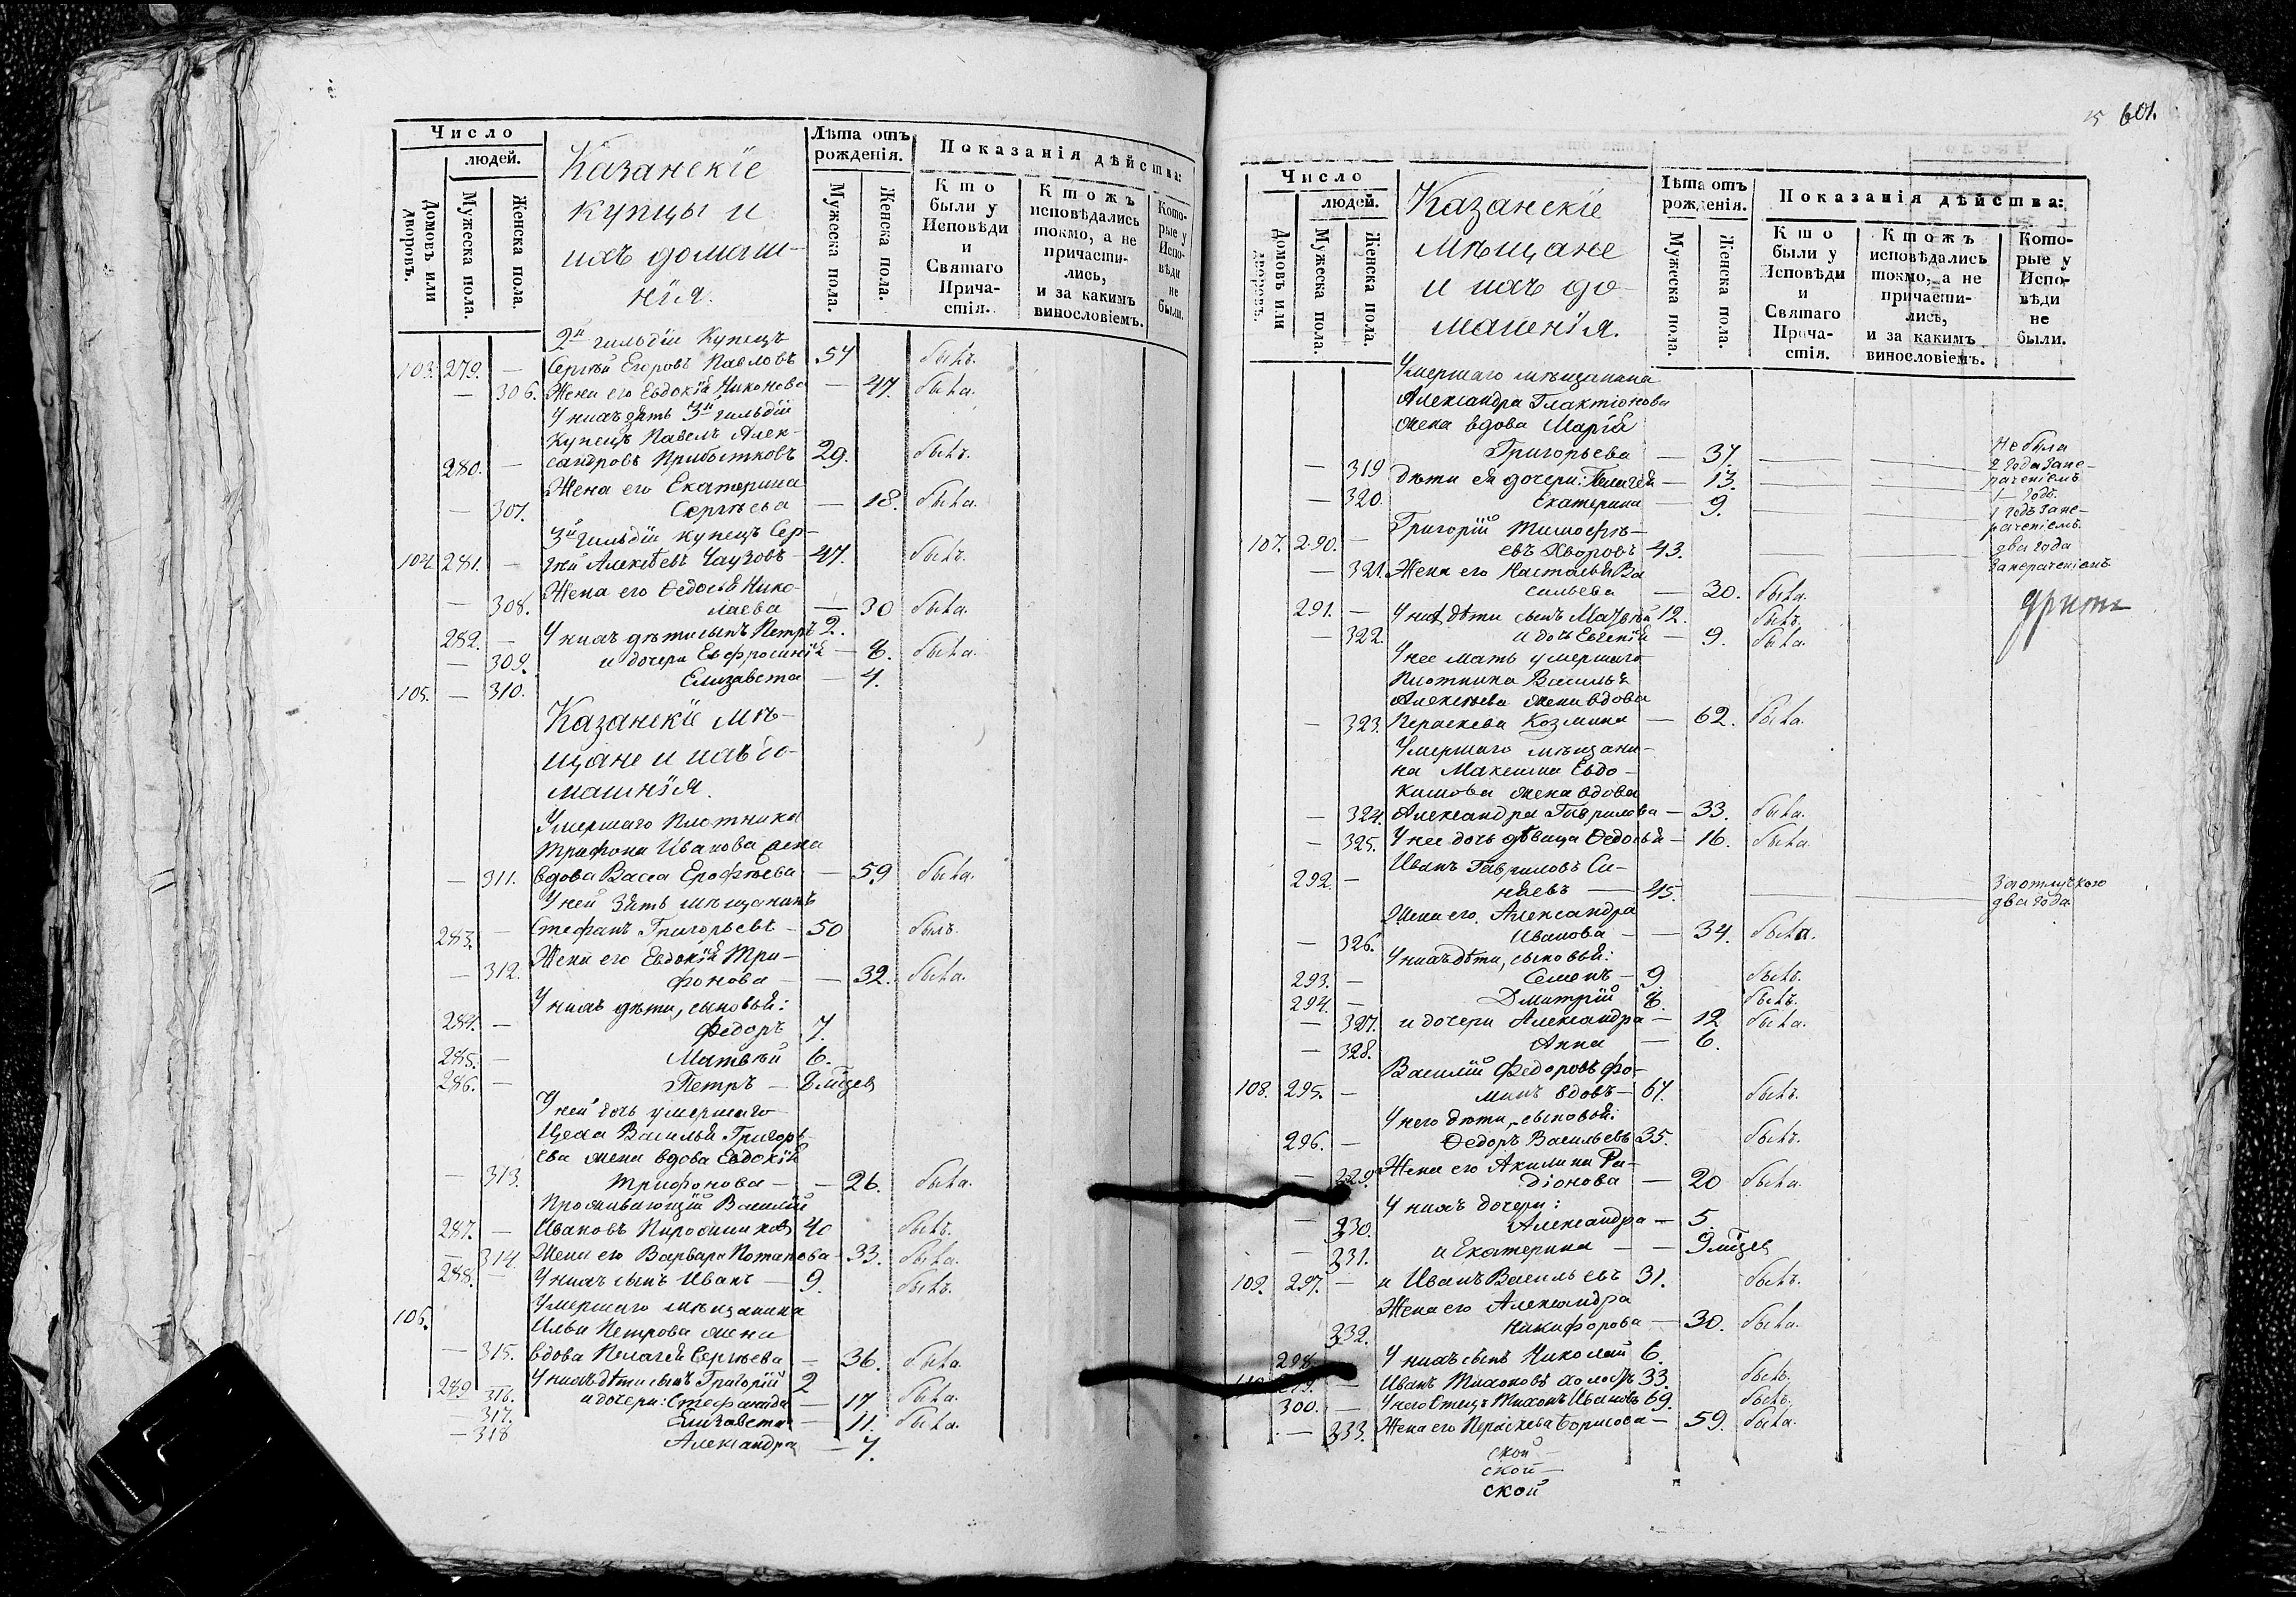 Число
людей.
Домовъ или дворовъ.
Мужеска пола.
Женска пола.
Казанскіе
купцы и
ихъ домаш-
нія.
Лѣта отъ
рожденія.
Мужеска пола.
Женска пола.
Показанія дѣйства:
Кто были у Исповѣди и Святаго Прича- стія.
Ктожъ исповѣдались токмо, а не причасти- лись, и за какимъ винословіемъ.
Кото- рые у Испо- вѣди не были.
2й гильдіи Купецъ
103. 279. — Сергѣй Егоровъ Павловъ 54 былъ.
— 306. Жена его Евдокія Никонова — 47. была.
У нихъ зять 3й гильдіи
купецъ Павелъ Алек-
280. — сандровъ Прибытковъ 29. былъ.
Жена его Екатерина
— 307. Сергѣева — 18. была.
3й гильдіи купецъ Сер-
104 281. — гѣй Алексѣевъ Чаузовъ — 47. былъ.
Жена его Ѳедосья Нико-
— 308. лаева — 30 была.
282. — У нихъ дѣти сынъ Петръ 2.
— 309. и дочери Евфросинія — 8. была.
105. — 310. Елизавета — 4.
Казанскіе мѣ-
щане и ихъ до-
машнія.
Умершаго плотника
Трифона Иванова жена
— 311. вдова Васса Ерофѣева — 59 была.
У ней зять мѣщанинъ
283. — Стефанъ Григорьевъ — 50 былъ.
Жена его Евдокія Три-
— 312. фонова — 32. была.
У нихъ дѣти, сыновья:
284. — Федоръ 7.
285. — Матвѣй 6.
286. — Петръ — 8 мѣсец
У ней дочь умершаго
Цеха Василья Григорь-
ева жена вдова Евдокія
— 313. Трифонова — — 26. была.
Проживающій Василій
287. — Ивановъ Пирожниковъ 40 былъ.
— 314. Жена его Варвара Потапова — 33. была.
288. — У нихъ сынъ Иванъ — 9. былъ.
Умершаго мѣщанина
106. Ильи Петрова жена
— 315. вдова Пелагея Сергѣева — 36. была.
289 — У нихъ дѣти сынъ Григорій 2
316. и дочери: Стефанида — 17 была.
— 317. Елизавета — 11. была.
— 318 Александра — 7.
601.
Число
людей.
Домовъ или дворовъ.
Мужеска пола.
Женска пола.
Казанскіе
мѣщане
и ихъ до-
машнія.
Лѣта отъ
рожденія.
Мужеска пола.
Женска пола.
Показанія дѣйства:
Кто были у Исповѣди и Святаго Прича- стія.
Ктожъ исповѣдались токмо, а не причасти- лись, и за какимъ винословіемъ.
Кото- рые у Испо- вѣди не были.
Умершаго мѣщанина
Александра Галактіонова
жена вдова Марія
Григорьева — 37. не была
— 319 2 года за не-
дѣти ея дочери: Пелагея — 13. раченіемъ
— 320. Екатерина — 9. 1 годъ.
1 годъ за не-
Григорій Тимофѣ- раченіемъ.
107. 290. — евъ Хворовъ 43. два года
за нераченіемъ
— 321. Жена его Настасья Ва
сильева — 20. была.
291. — У нихъ дѣти сынъ Матвѣй 12. былъ.
— 322. и дочь Евгенія — 9. была.
У нее мать умершаго
плотника Василья
Алексѣева жена вдова
— 323. Параскева Козмина — 62. была.
Умершаго мѣщани-
на Максима Евдо-
кимова жена вдова
— 324. Александра Гаврилова — 33. была.
— 325. У нее дочь дѣвица Ѳедосья — 16. была
Иванъ Гавриловъ Си-
292. — няевъ — 45. За отлучкою
два года
Жена его Александра
— 326. Иванова — — 34. была.
У нихъ дѣти, сыновья:
293. — Семенъ — 9. былъ.
294. — Дмитрій 8. былъ.
— 327. и дочери Александра — 12 была.
— 328. Анна — 6.
Василій Федоровъ Фо-
108. 295. — минъ вдовъ — 67. былъ.
У него дѣти, сыновья:
296. — Ѳедоръ Васильевъ 35. былъ.
— 229. Жена его Акилина Ра-
діонова — 20 была.
У нихъ дочери:
— 230. Александра — 5.
— 231. и Екатерина — — 9 мѣсец
109. 297. — и Иванъ Васильевъ 31. былъ.
Жена его Александра
232. Никифорова — 30. была.
298. У нихъ сынъ Николай 6.
— Иванъ Тихоновъ холостъ 33. былъ.
300. — У него Отецъ Тихонъ Ивановъ 69. былъ.
— 233. Жена его Параскева Борисова — 59. была.
ской
ской
ской